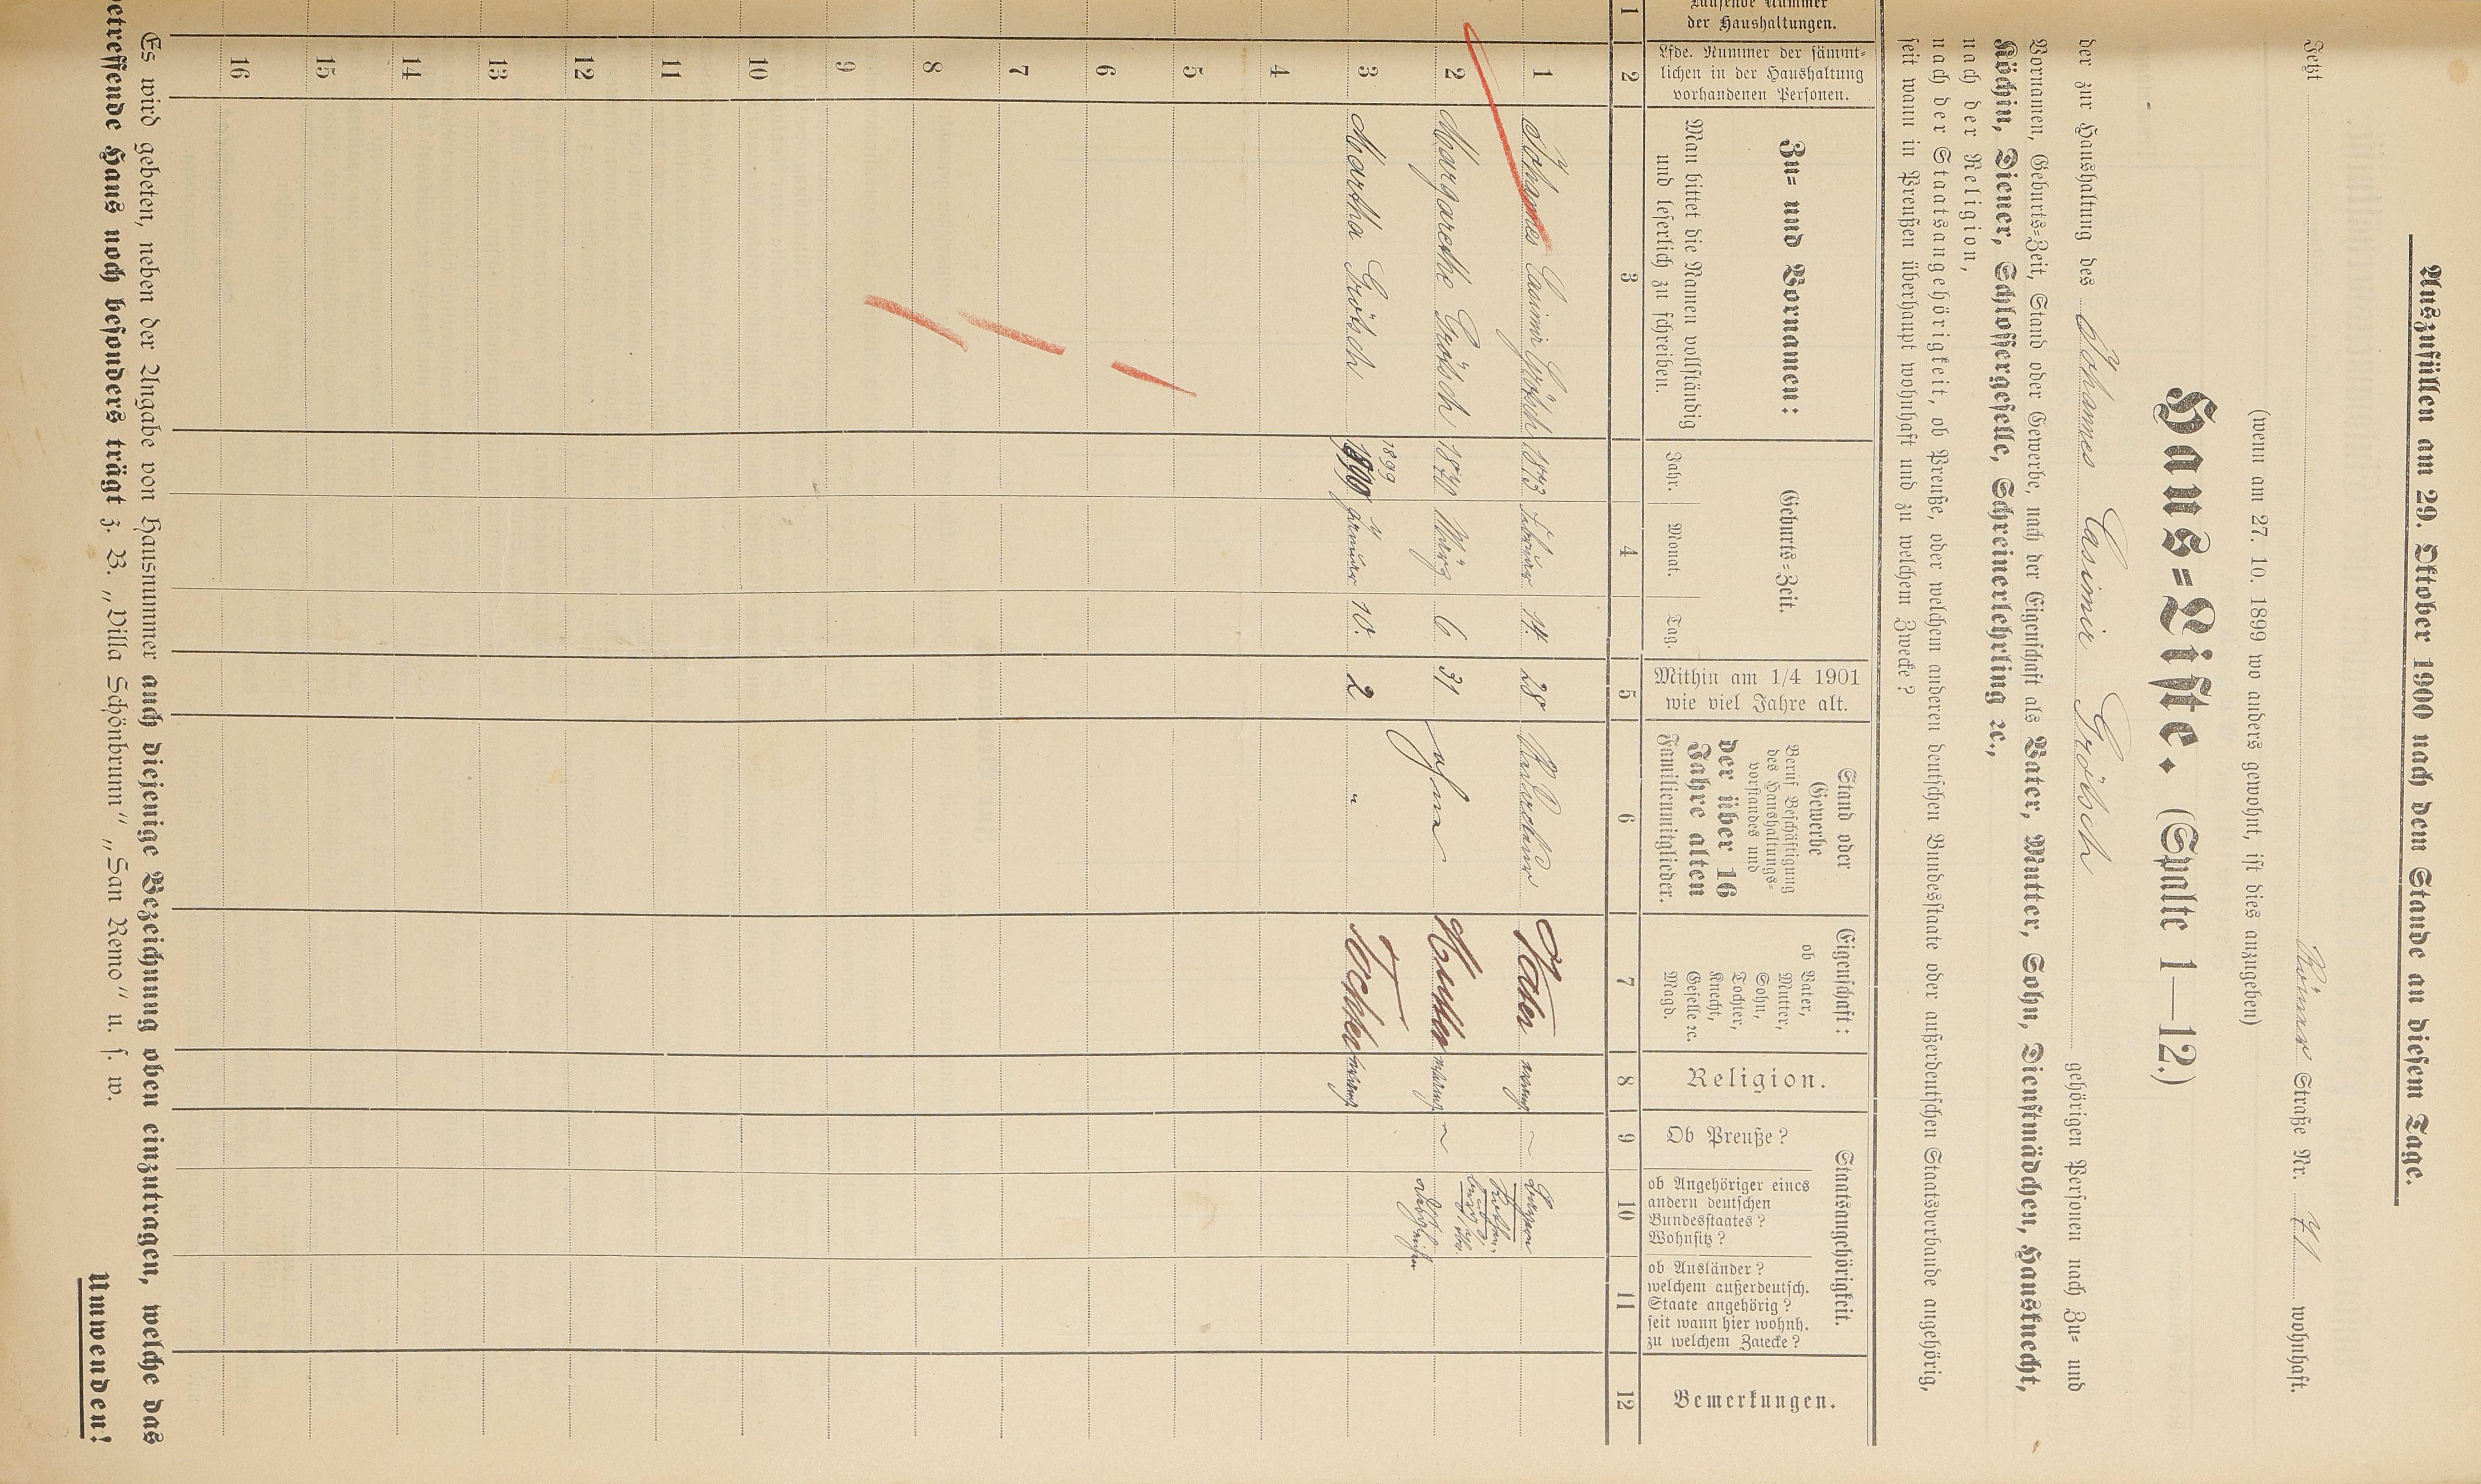 Auszufüllen am 29. Oktober 1900 nach dem Stande an diesem Tage.
Jetzt Straße Nr. 71 wohnhaft.
(wenn am 27. 10. 1899 wo anders gewohnt, ist dies anzugeben)
Haus=Liste. (Spalte 1—12.)
der zur Haushaltung des Johannes Casimir Grötsch gehörigen Personen nach Zu= und
Vornamen, Geburts=Zeit, Stand oder Gewerbe, nach der Eigenschaft als Vater, Mutter, Sohn, Dienstmädchen, Hausknecht,
Köchin, Diener, Schlossergeselle, Schreinerlehrling ꝛc.,
nach der Religion,
nach der Staatsangehörigkeit, ob Preuße, oder welchem anderen deutschen Bundesstaate oder außerdeutschen Staatsverbande angehörig,
seit wann in Preußen überhaupt wohnhaft und zu welchem Zwecke?
Laufende Nummer
der Haushaltungen.
Lfde. Nummer der sämmt=
lichen in der Haushaltung
vorhandenen Personen.
Zu= und Vornamen:
Man bittet die Namen vollständig
und leserlich zu schreiben.
Geburts=Zeit.
Jahr. Monat. Tag.
Mithin am 1/4 1901
wie viel Jahre alt.
Stand oder
Gewerbe
Beruf Beschäftigung
des Haushaltungs=
vorstandes und
der über 16
Jahre alten
Familienmitglieder.
Eigenschaft:
ob Vater,
Mutter,
Sohn,
Tochter,
Knecht,
Geselle ꝛc.
Magd.
Religion.
Staatsangehörigkeit.
Ob Preuße?
ob Angehöriger eines
andern deutschen
Bundesstaates?
Wohnsitz?
ob Ausländer?
welchem außerdeutsch.
Staate angehörig?
seit wann hier wohnh.
zu welchem Zwecke?
Bemerkungen.
1 2 3 4 5 6 7 8 9 10 11 12
1 Johannes Casimir Grötsch 1873 Februar 14. 28 Vater Bayern
2 Margarethe Grötsch 1870 März 6. 31 ohne Mutter
1899
3 Martha Grötsch 1899 Januar 10. 2 " Tochter
4
5
6
7
8
9
10
11
12
13
14
15
16
Es wird gebeten, neben der Angabe von Hausnummer auch diejenige Bezeichnung oben einzutragen, welche das
betreffende Haus noch besonders trägt z. B. „Villa Schönbrunn" „San Remo" u. s. w.
Umwenden!